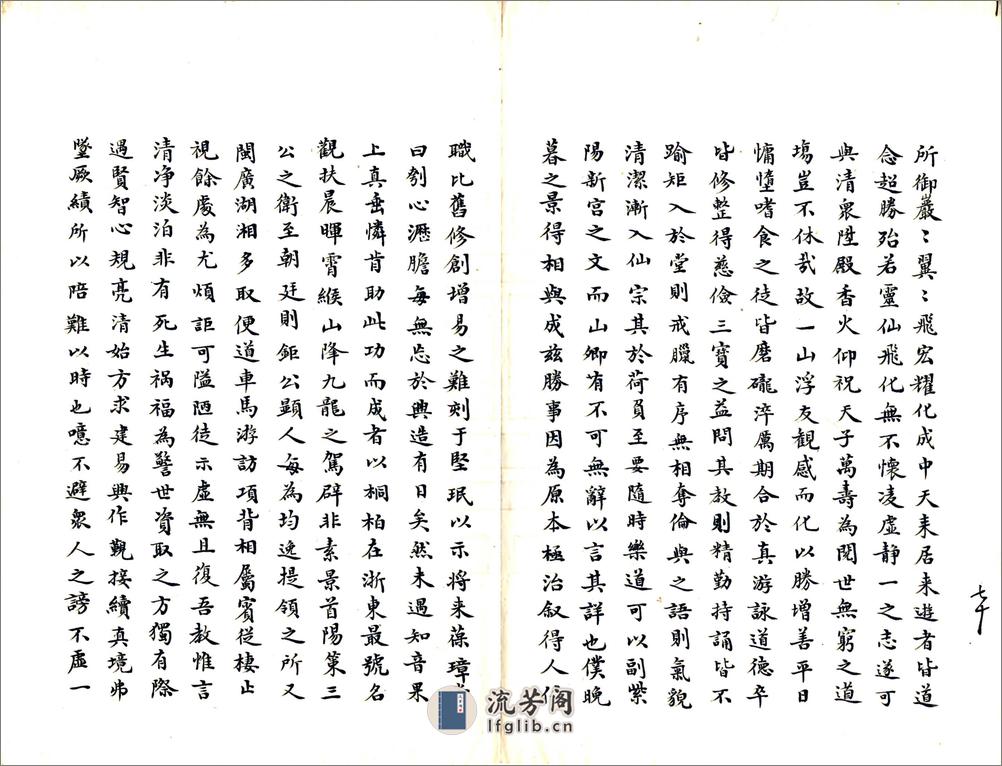 所御嚴〻翼〻飛宏耀化成中天来居来遊者皆道
念超勝殆若靈仙飛化無不懷凌虛静一之志遂可
與清衆陞殿香火仰祝天子萬壽為閱世無窮之道
塲豈不休㢤故一山浮友觀感而化以勝增善平日
慵惰嗜食之徒皆磨礲淬厲期合於真游詠道德卒
皆修整得慈儉三寶之益問其教則精勤持誦皆不
踰矩入於堂則戒臘有序無相奪倫與之語則氣貌
清潔漸入仙宗其於荷負至要隨時樂道可以副紫
陽新宮之文而山卿有不可無辭以言其詳也僕晚
暮之景得相與成兹勝事因為原本極治叙得人任
職比舊修創增易之難刻于堅珉以示将来葆璋
曰刳心瀝膽每無忘於興造有日矣然未遇知音果
上真垂憐肯助此功而成者以桐柏在浙東最號名
觀扶晨暉霄緱山降九龍之駕辟非素景首陽第三
公之衛至朝廷則鉅公顯人每為均逸提領之所又
閩廣湖湘多取便道車馬游訪項背相屬賓従棲止
視餘處為尤煩詎可隘陋徒示虛無且復吾教惟言
清净淡泊非有死生禍福為警世資取之方獨有際
遇賢智心規亮清始方求建易興作觀接續真境弗
墜厥績所以陪難以時也噫不避衆人之謗不虛一
七十
流芳阁
lfglib.cn